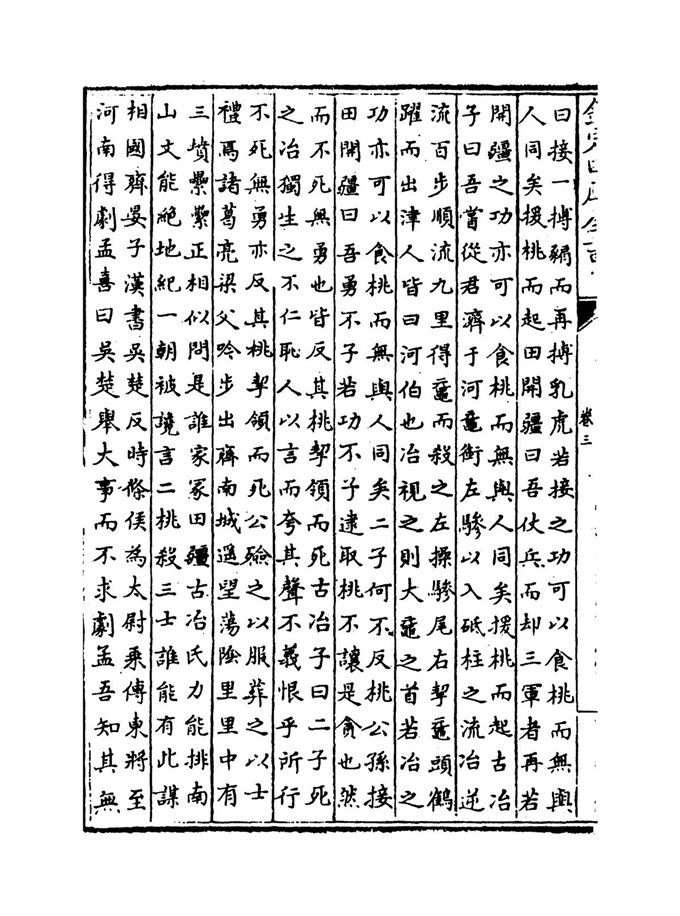 欽定四庫全書
卷三
曰接一搏豜而再搏乳虎若接之功可以食桃而無與
人同矣援桃而起田開疆曰吾仗兵而却三軍者再若
開疆之功亦可以食桃而無與人同矣援桃而起古冶
子曰吾嘗從君濟于河黿銜左驂以入砥柱之流冶逆
流百步順流九里得黿而殺之左操驂尾右挈黿頭鶴
躍而出津人皆曰河伯也冶視之則大黿之首若冶之
功亦可以食桃而無與人同矣二子何不反桃公孫接
田開疆曰吾勇不子若功不子逮取桃不讓是貪也然
而不死無勇也皆反其桃挈領而死古冶子曰二子死
之冶獨生之不仁恥人以言而夸其聲不義恨乎所行
不死無勇亦反其桃挈領而死公殮之以服葬之以士
禮焉諸葛亮梁父吟步出齊南城遥望蕩陰里里中有
三墳纍纍正相似問是誰家冢田疆古冶氏力能排南
山文能絶地紀一朝被讒言二桃殺三士誰能有此謀
相國齊晏子漢書吳楚反時條侯為太尉乘傳東將至
河南得劇孟喜曰吳楚舉大事而不求劇孟吾知其無